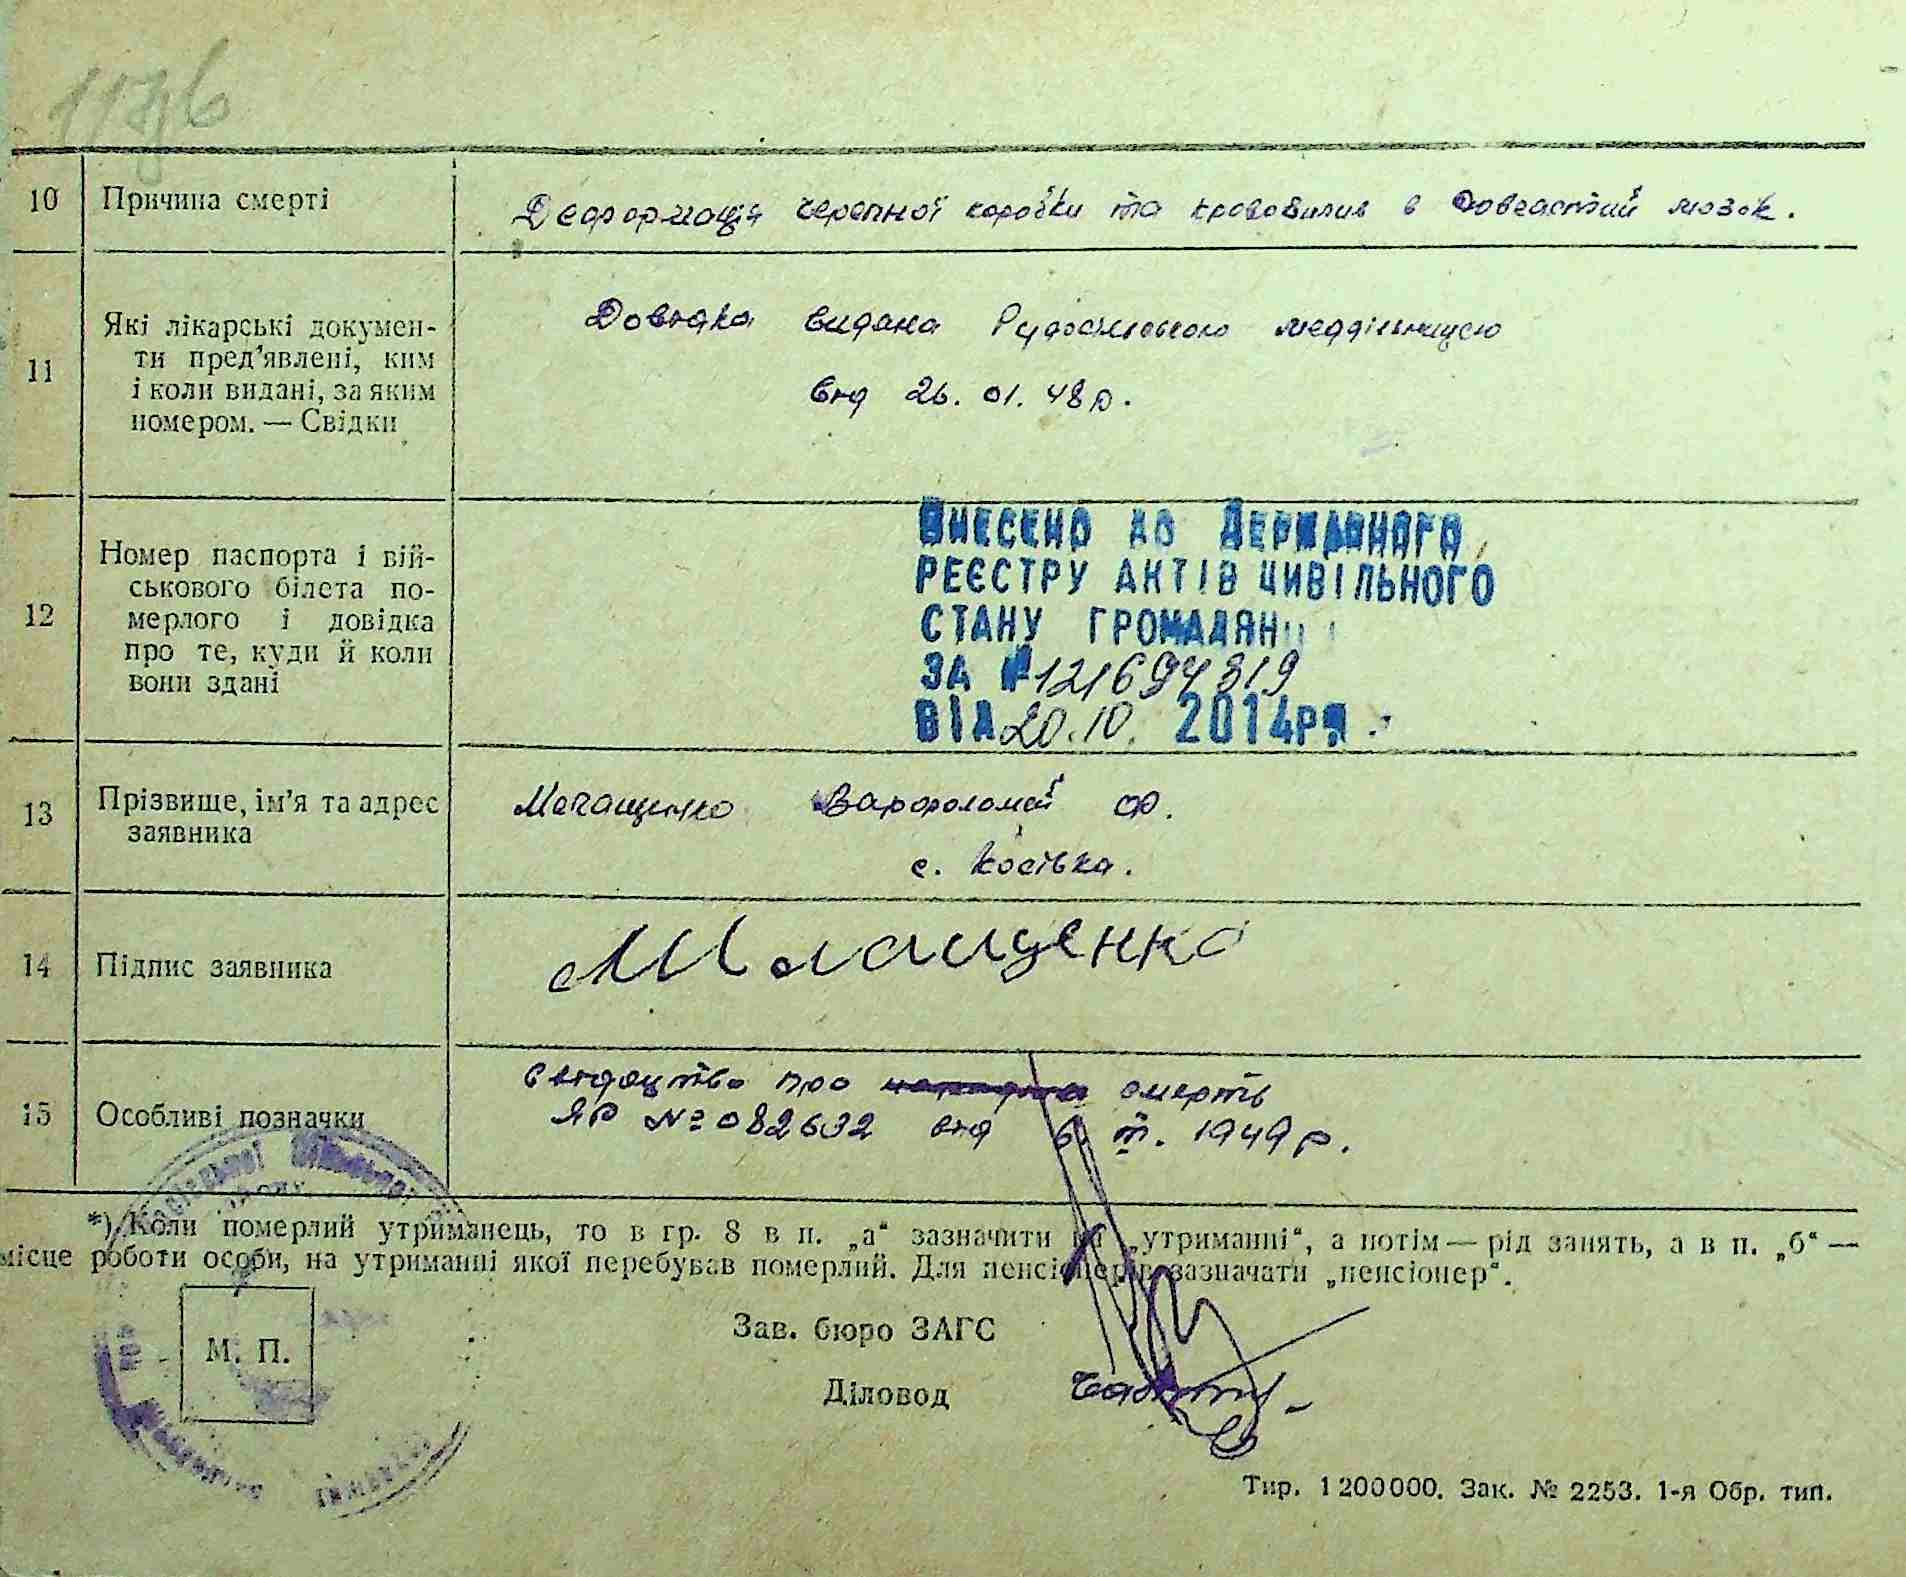 10 Причина смерті Деформація черепної коробки та крововилив в довгастий мозок.
11 Які лікарські докумен-
ти пред'явлені, ким
і коли видані, за яким
номером. — Свідки
Довідка видана меддільницею
від 26. 01. 48 р.
12 Номер паспорта і вій-
ськового білета по-
мерлого і довідка
про те, куди й коли
вони здані
ВНЕСЕНО ДО ДЕРЖАВНОГО
РЕЄСТРУ АКТІВ ЦИВІЛЬНОГО
СТАНУ ГРОМАДЯН
ЗА № 121694319
ВІД 20.10. 2014р.
13 Прізвище, ім'я та адрес
заявника
Малащенко Варфоломей Ф.
с. Косівка.
14 Підпис заявника Малащенко
15 Особливі позначки
Свідоцтво про смерть
ЯР № 082632 від 1949 р.
*) Коли померлий утриманець, то в гр. 8 в п. „а“ зазначити на „утриманні“, а потім — рід занять, а в п. „б“ —
місце роботи особи, на утриманні якої перебував померлий. Для пенсіонерів зазначати „пенсіонер“.
М. П.
Зав. бюро ЗАГС
Діловод
Тир. 1 200 000. Зак. № 2253. 1-я Обр. тип.